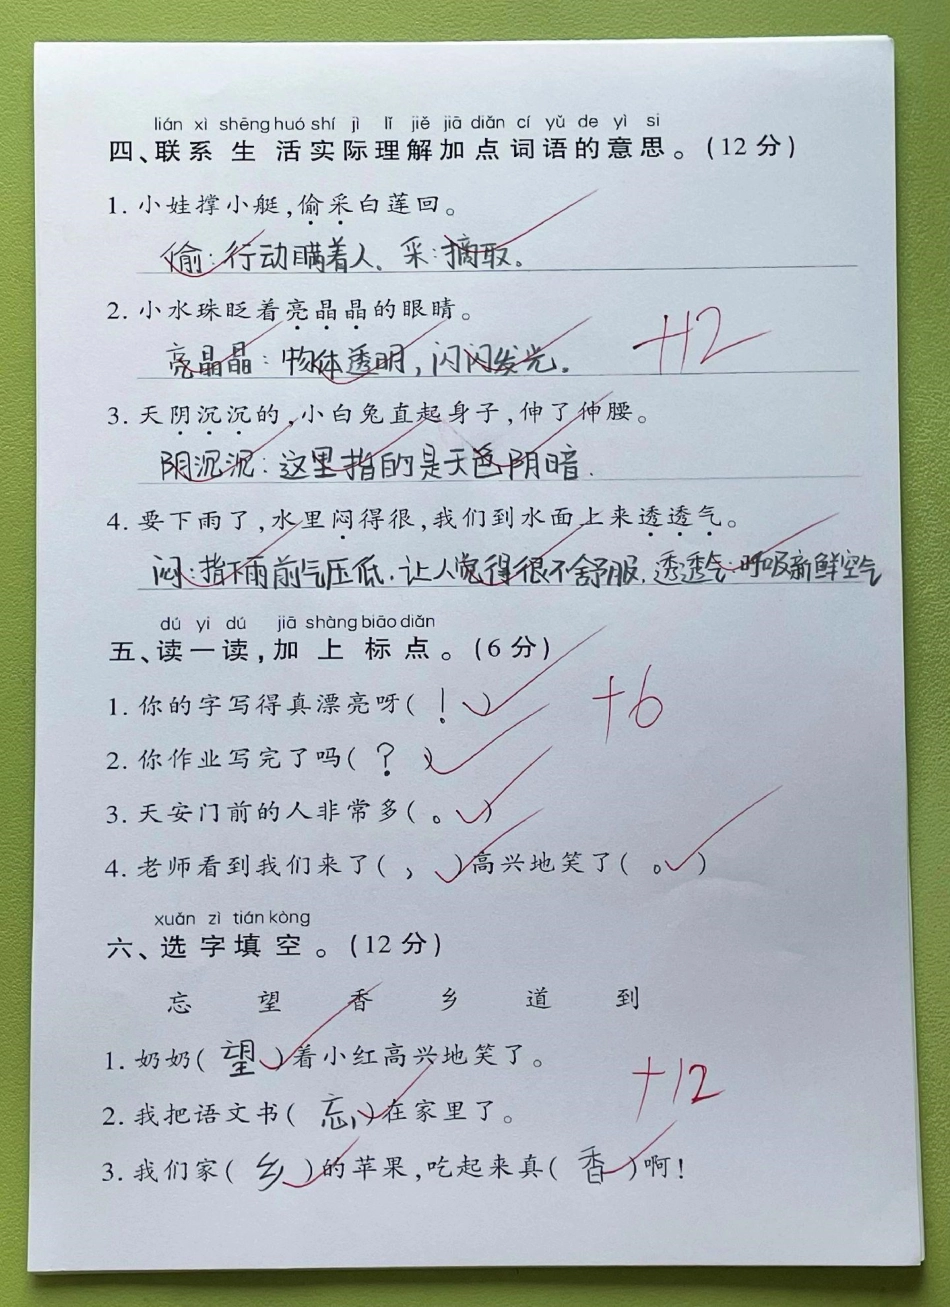 lián xì shēng huó shí jì lǐ jiě jiā diǎn cí yǔ de yì si
四、联系生活实际理解加点词语的意思。(12分)
1. 小娃撑小艇,偷采白莲回。
偷:行动瞒着人. 采:摘取。
2. 小水珠眨着亮晶晶的眼睛。
+12
亮晶晶:物体透明,闪闪发光。
3. 天阴沉沉的,小白兔直起身子,伸了伸腰。
阴沉沉:这里指的是天色阴暗.
4. 要下雨了,水里闷得很,我们到水面上来透透气。
闷:指下雨前气压低.让人觉得很不舒服.透透气:呼吸新鲜空气
dú yi dú jiā shàng biāo diǎn
五、读一读,加上标点。(6分)
1. 你的字写得真漂亮呀(!)
+6
2. 你作业写完了吗(?)
3. 天安门前的人非常多(。)
4. 老师看到我们来了(,)高兴地笑了(。)
xuǎn zì tián kòng
六、选字填空。(12分)
忘 望 香 乡 道 到
1. 奶奶(望)着小红高兴地笑了。
+12
2. 我把语文书(忘)在家里了。
3. 我们家(乡)的苹果,吃起来真(香)啊!